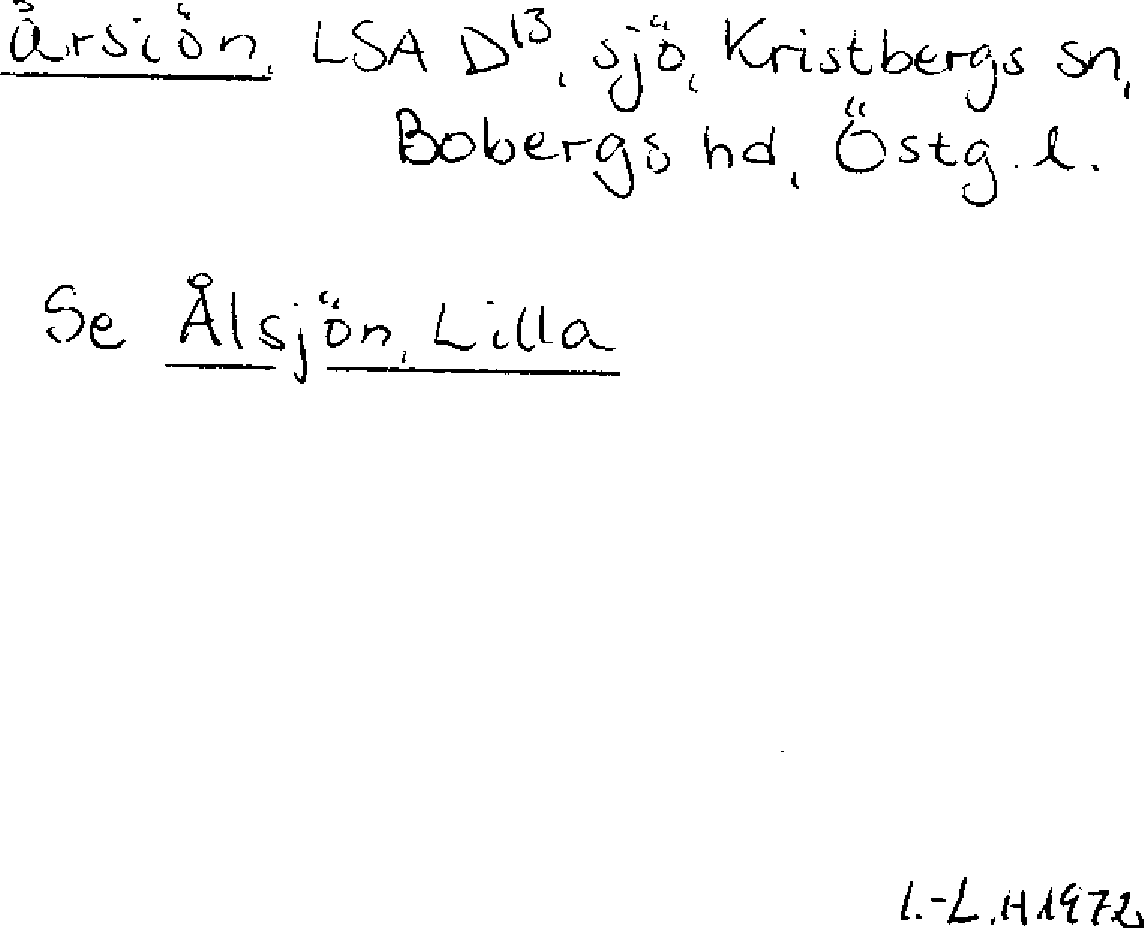 årsiön, LSA D13, sjö, Kristbergs sn,
Bobergs hd, Östg. l.
Se Ålsjön, Lilla
I.-L.H 1972